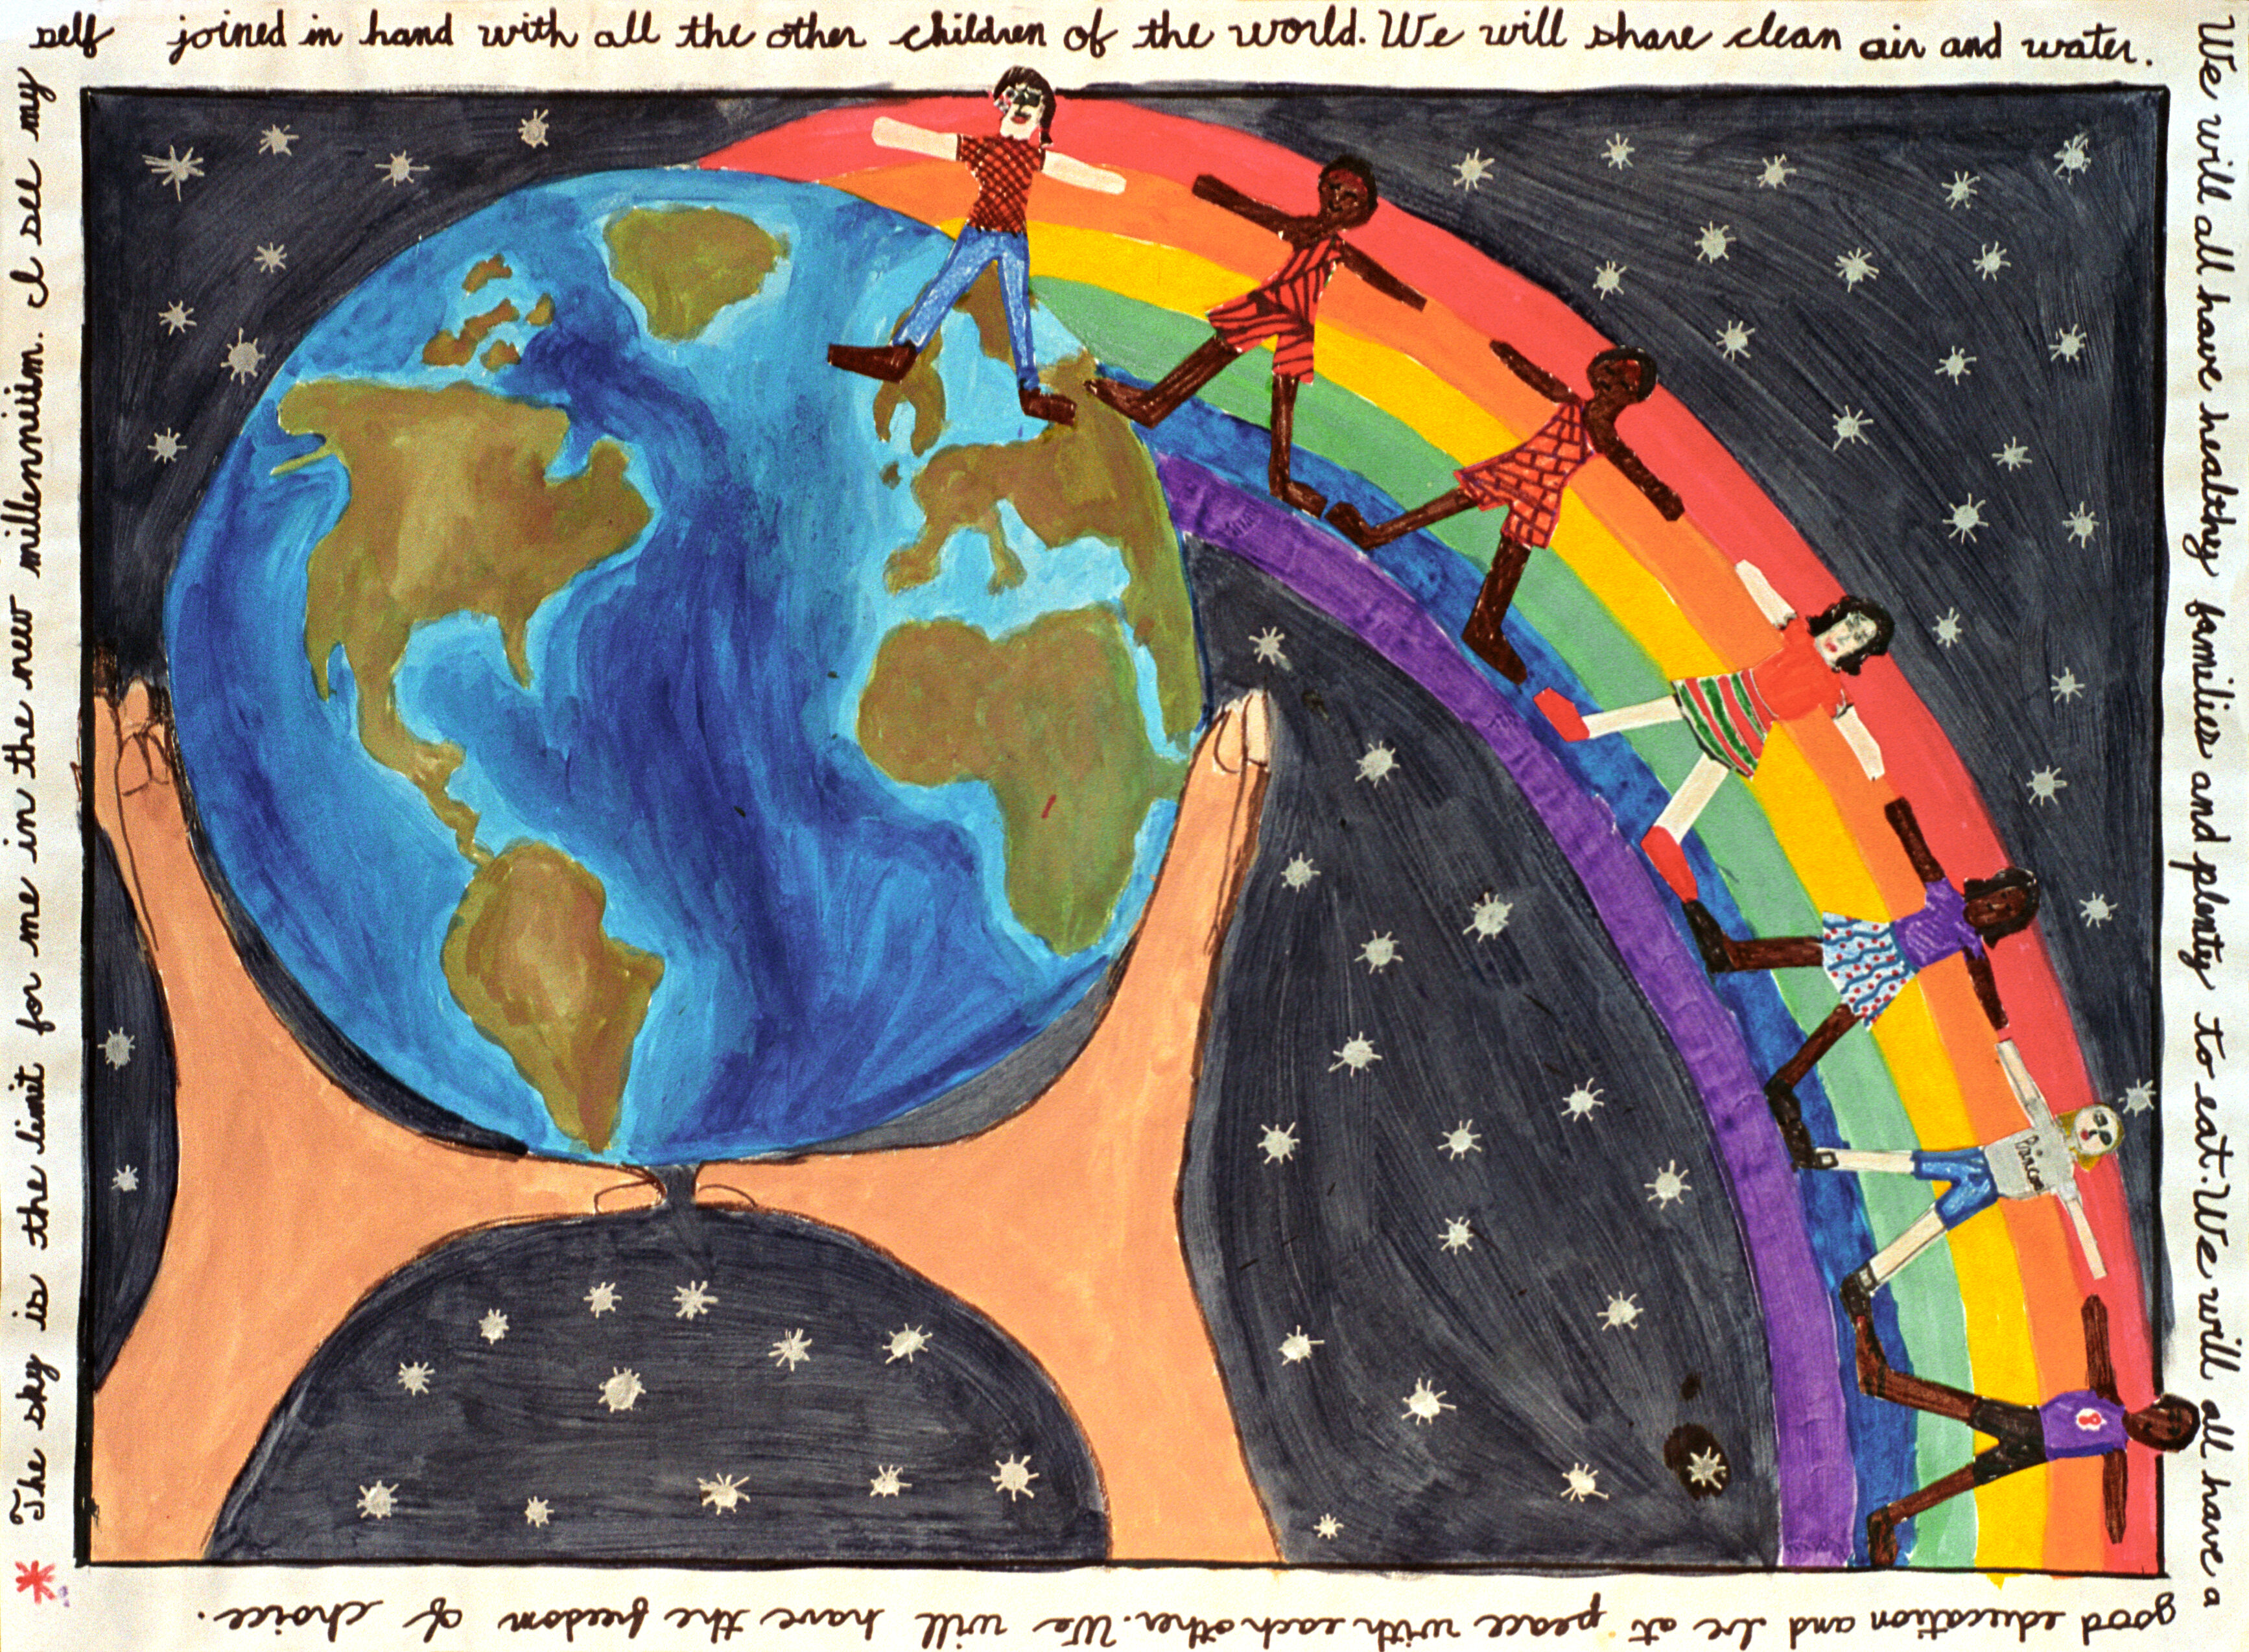 The sky is the limit for me in the new millennium. I see my
self joined in hand with all the other children of the world. We will share clean air and water.
We will all have healthy families and plenty to eat. We will all have a
good education and be at peace with each other. We will have the freedom of choice.